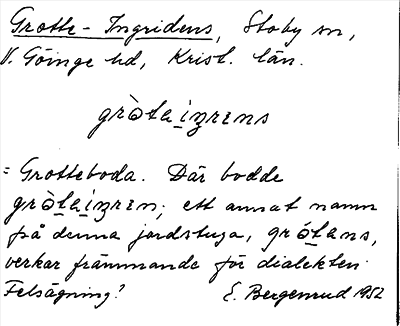 Grotte-Ingridens, Stoby sn,
V. Göinge hd, Krist. län.
gròta inrens
= Grotteboda. Där bodde
gròta inren; ett annat namn
på denna jordstuga, grótans,
verkar främmande för dialekten.
Felsägning? E. Bergenrud 1952